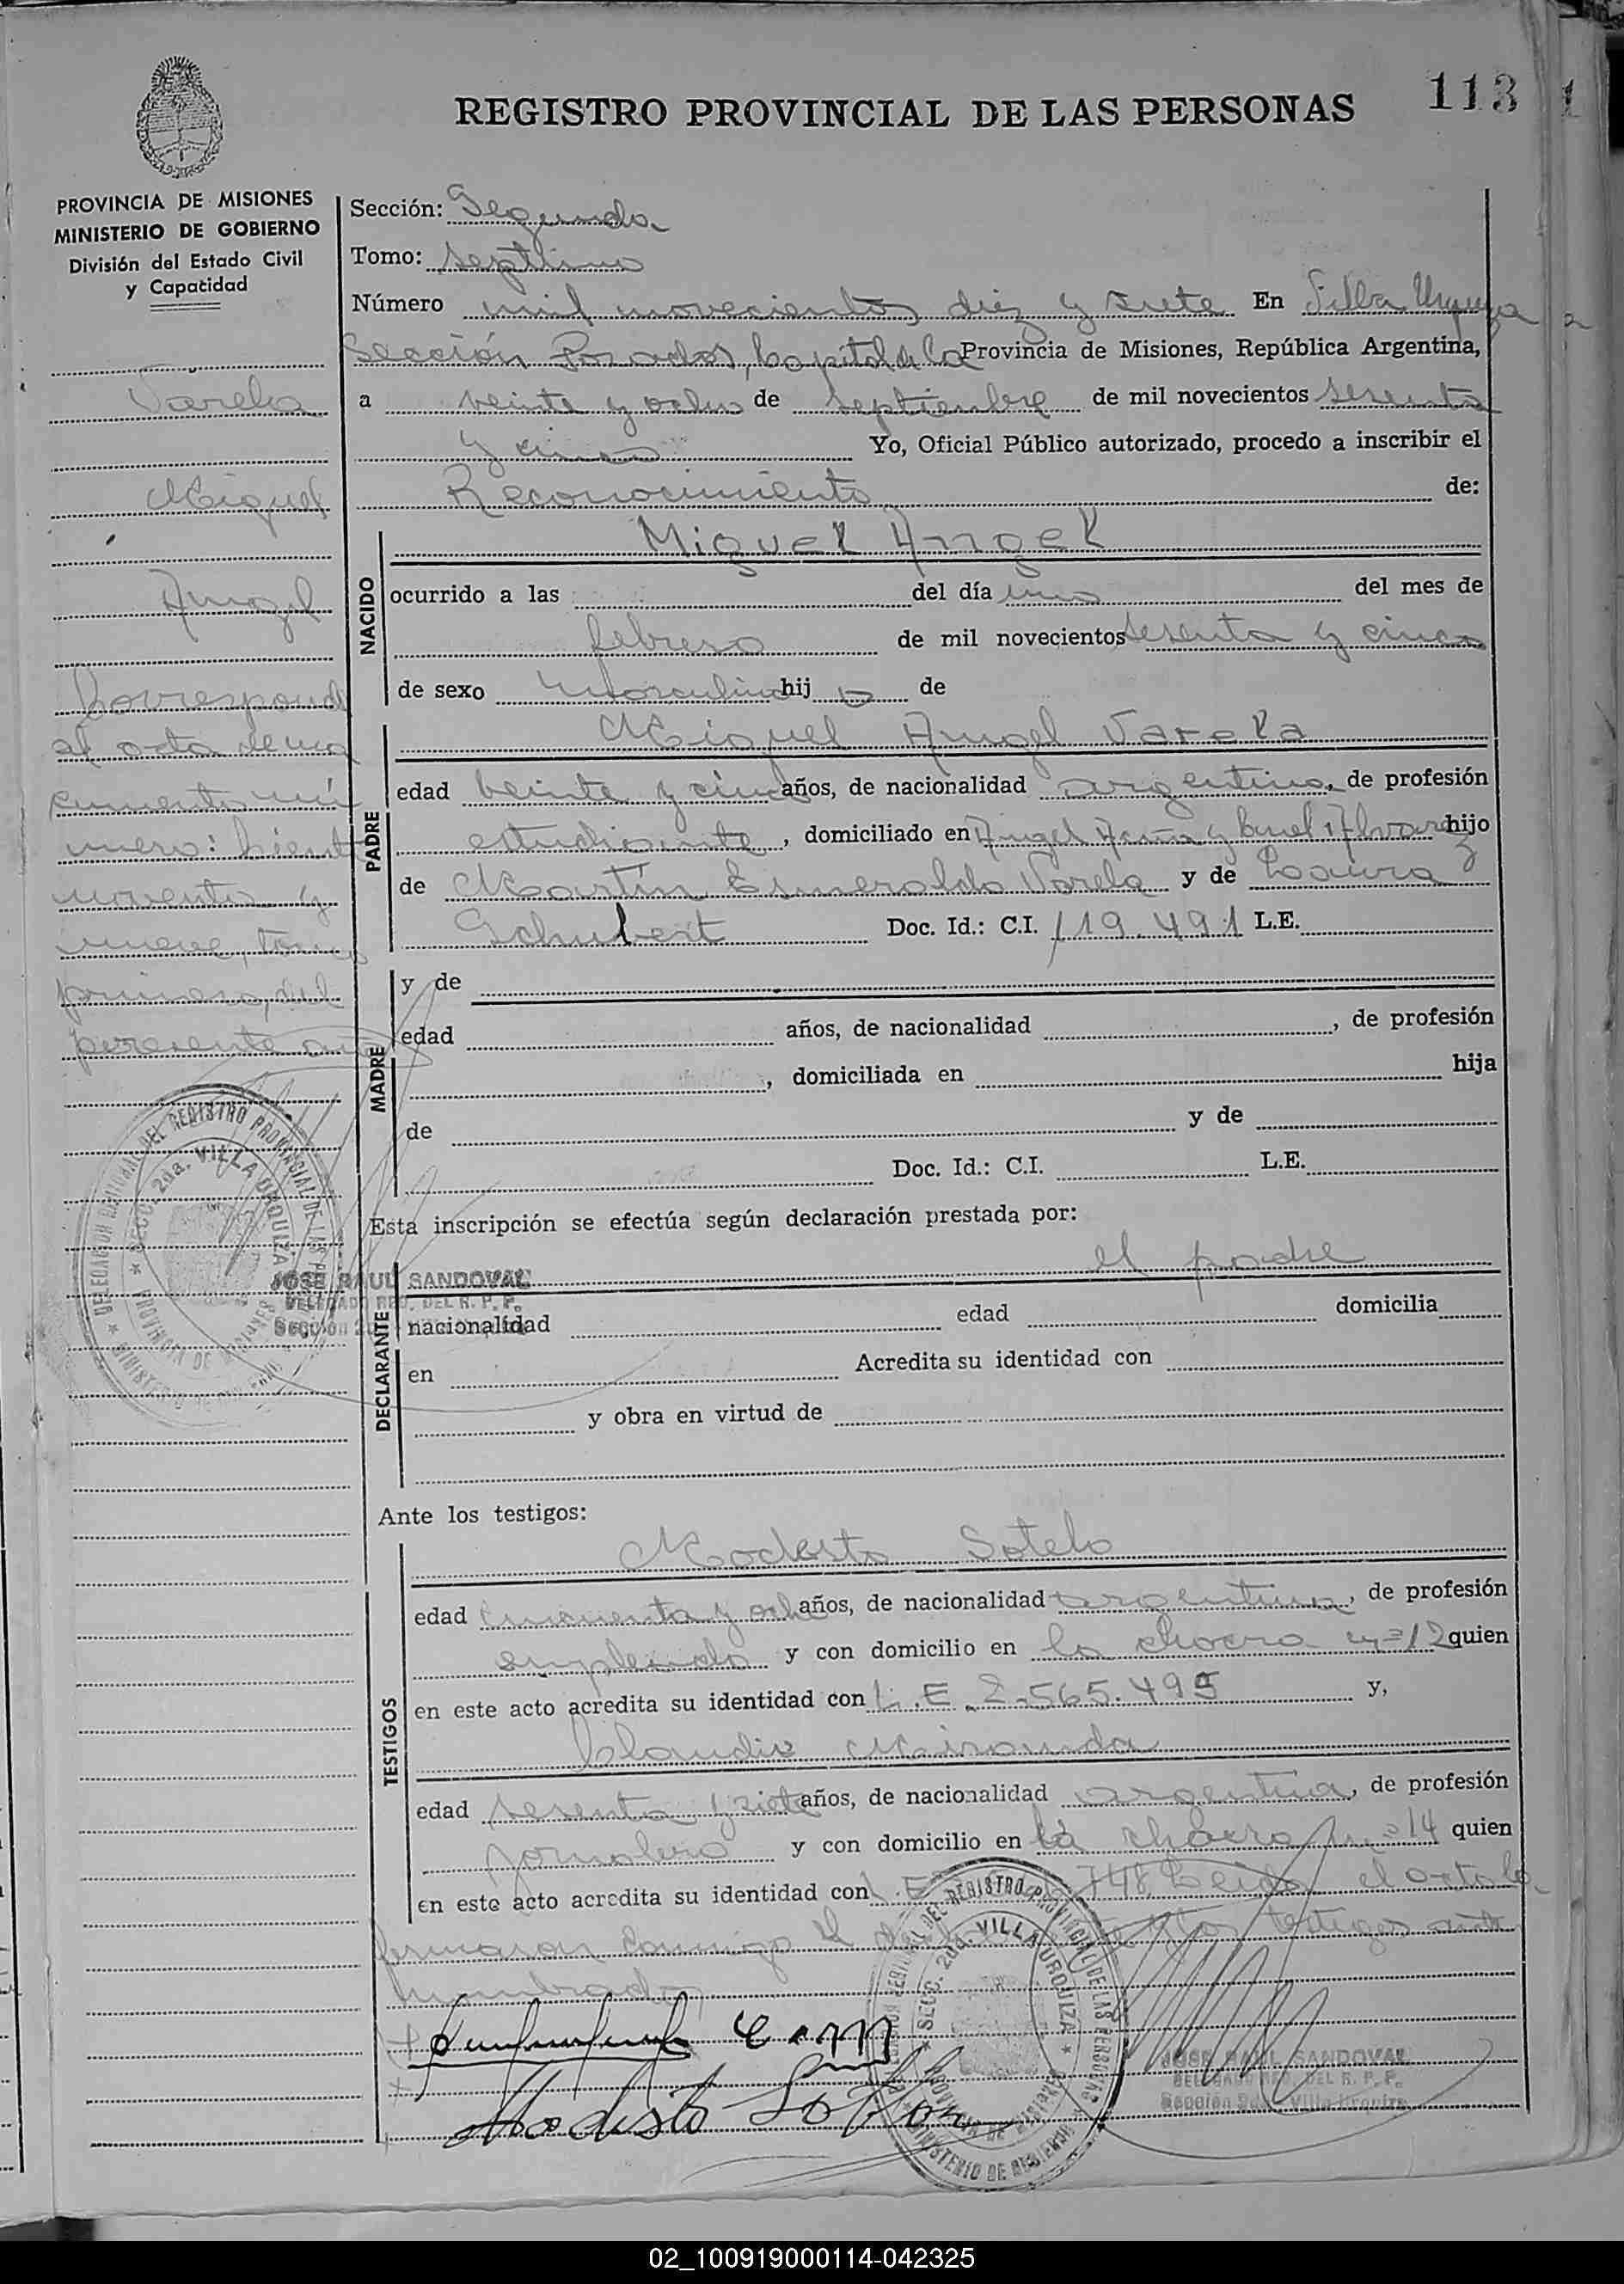 REGISTRO PROVINCIAL DE LAS PERSONAS
113
PROVINCIA DE MISIONES
MINISTERIO DE GOBIERNO
División del Estado Civil
y Capacidad
Varela
Miguel
Angel
Correspond
al acta de na
cimiento nú
mero: Ciento
noventa y
nueve, tomo
primero, del
presente año
Sección: Segunda
Tomo: Septimo
Número mil novecientos diez y siete En Villa Urquiza
Sección Posadas, Capital de la Provincia de Misiones, República Argentina,
a veinte y ocho de Septiembre de mil novecientos sesenta
y cinco Yo, Oficial Público autorizado, procedo a inscribir el
Reconocimiento de:
NACIDO
Miguel Angel
ocurrido a las del día uno del mes de
febrero de mil novecientos sesenta y cinco
de sexo masculino hij o de
PADRE
Miguel Angel Varela
edad veinte y cinco años, de nacionalidad argentina, de profesión
estudiante, domiciliado en Angel Acuña y Cnel Alvarez hijo
de Martín Esmeraldo Varela y de Laura
Schubert Doc. Id.: C.I. 119.491 L.E.
MADRE
y de
edad años, de nacionalidad , de profesión
, domiciliada en hija
de y de
Doc. Id.: C.I. L.E.
Esta inscripción se efectúa según declaración prestada por:
el padre
JOSE RAUL SANDOVAL
DELEGADO REG. DEL R. P. P.
DECLARANTE
nacionalidad edad domicilia
en Acredita su identidad con
y obra en virtud de
Ante los testigos:
TESTIGOS
Modesto Sotelo
edad cincuenta y ocho años, de nacionalidad argentina, de profesión
empleado y con domicilio en la chacra nº 12 quien
en este acto acredita su identidad con L.E. 2.565.495 y,
Claudio Miranda
edad sesenta y siete años, de nacionalidad argentina, de profesión
jornalero y con domicilio en la chacra nº 14 quien
en este acto acredita su identidad con L.E. 748 Leida el acta la
firmaron conmigo el testigos ante
nombrados
Modesto Sotelo
SECC. 2da. VILLA URQUIZA
JOSE RAUL SANDOVAL
DELEGADO REG. DEL R. P. P.
Sección 2da. Villa Urquiza
02_100919000114-042325